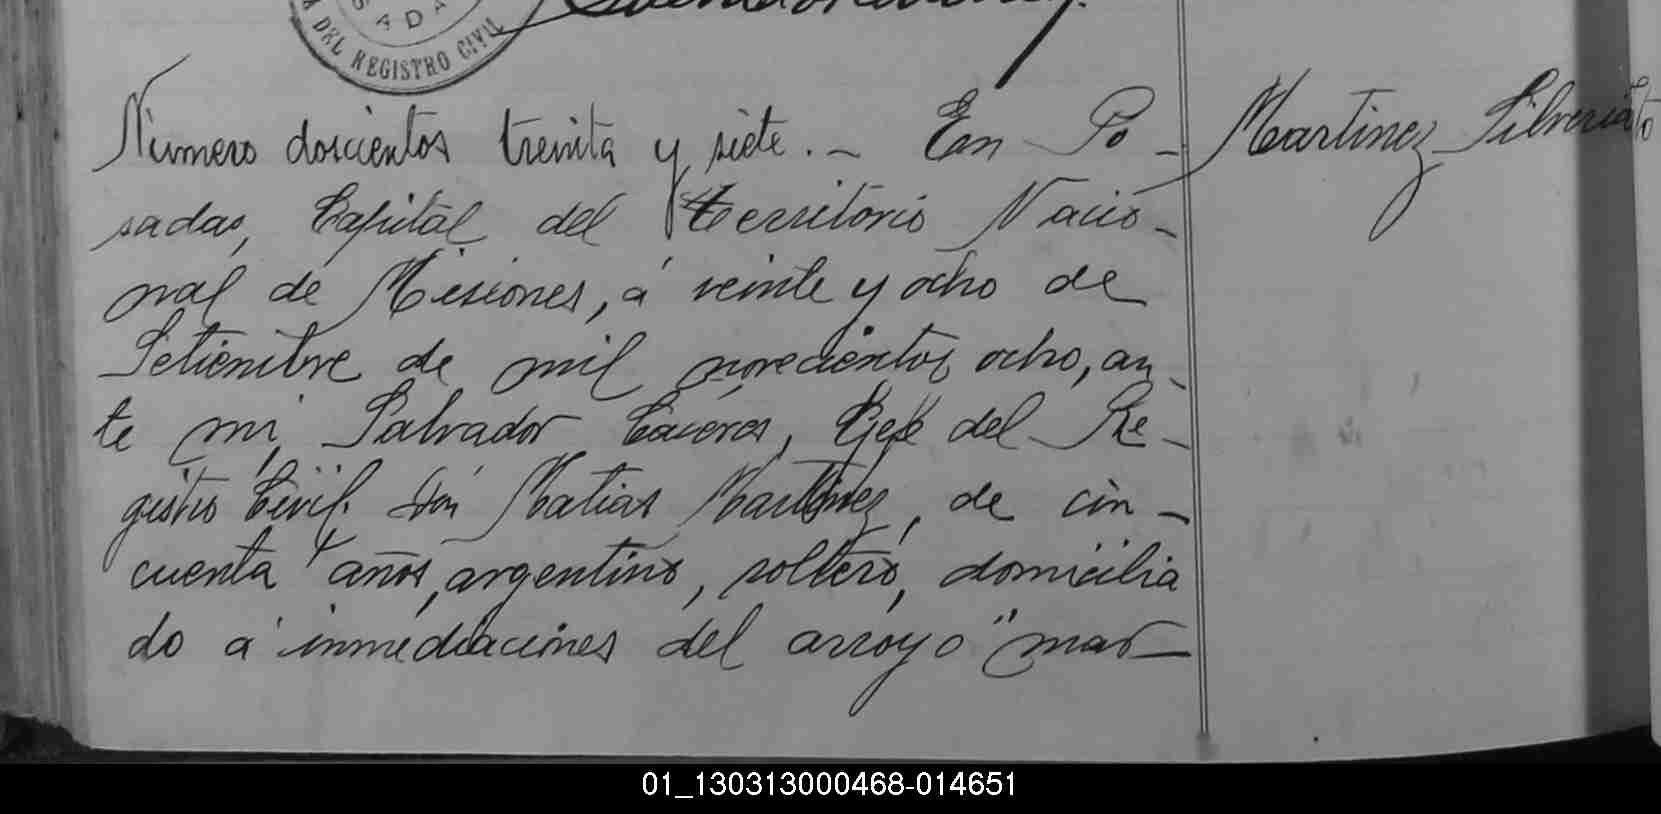 SADA
A DEL REGISTRO CIVIL
Número doscientos treinta y siete.- En Po-
sadas, Capital del Territorio Nacio-
nal de Misiones, á veinte y ocho de
Setiembre de mil novecientos ocho, an-
te mi, Salvador Cáceres, Gefe del Re-
gistro Civil. Don Matias Martinez, de cin-
cuenta años, argentino, soltero, domicilia
do á inmediaciones del arroyo "mar-
Martinez Silveria
01_130313000468-014651